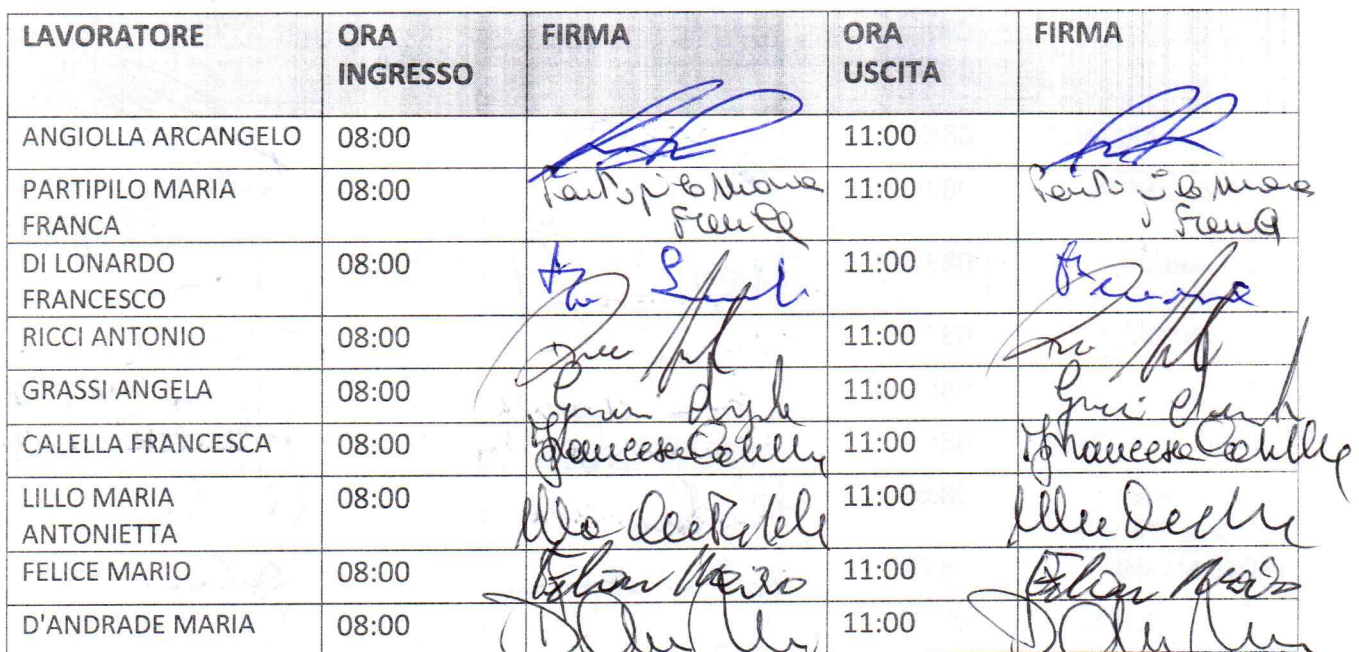 LAVORATORE ORA INGRESSO FIRMA ORA USCITA FIRMA
ANGIOLLA ARCANGELO 08:00 11:00
PARTIPILO MARIA FRANCA 08:00 Partipilo Maria Franca 11:00 Partipilo Maria Franca
DI LONARDO FRANCESCO 08:00 11:00
RICCI ANTONIO 08:00 11:00
GRASSI ANGELA 08:00 11:00
CALELLA FRANCESCA 08:00 Francesca Calella 11:00 Francesca Calella
LILLO MARIA ANTONIETTA 08:00 11:00
FELICE MARIO 08:00 Felice Mario 11:00 Felice Mario
D'ANDRADE MARIA 08:00 11:00